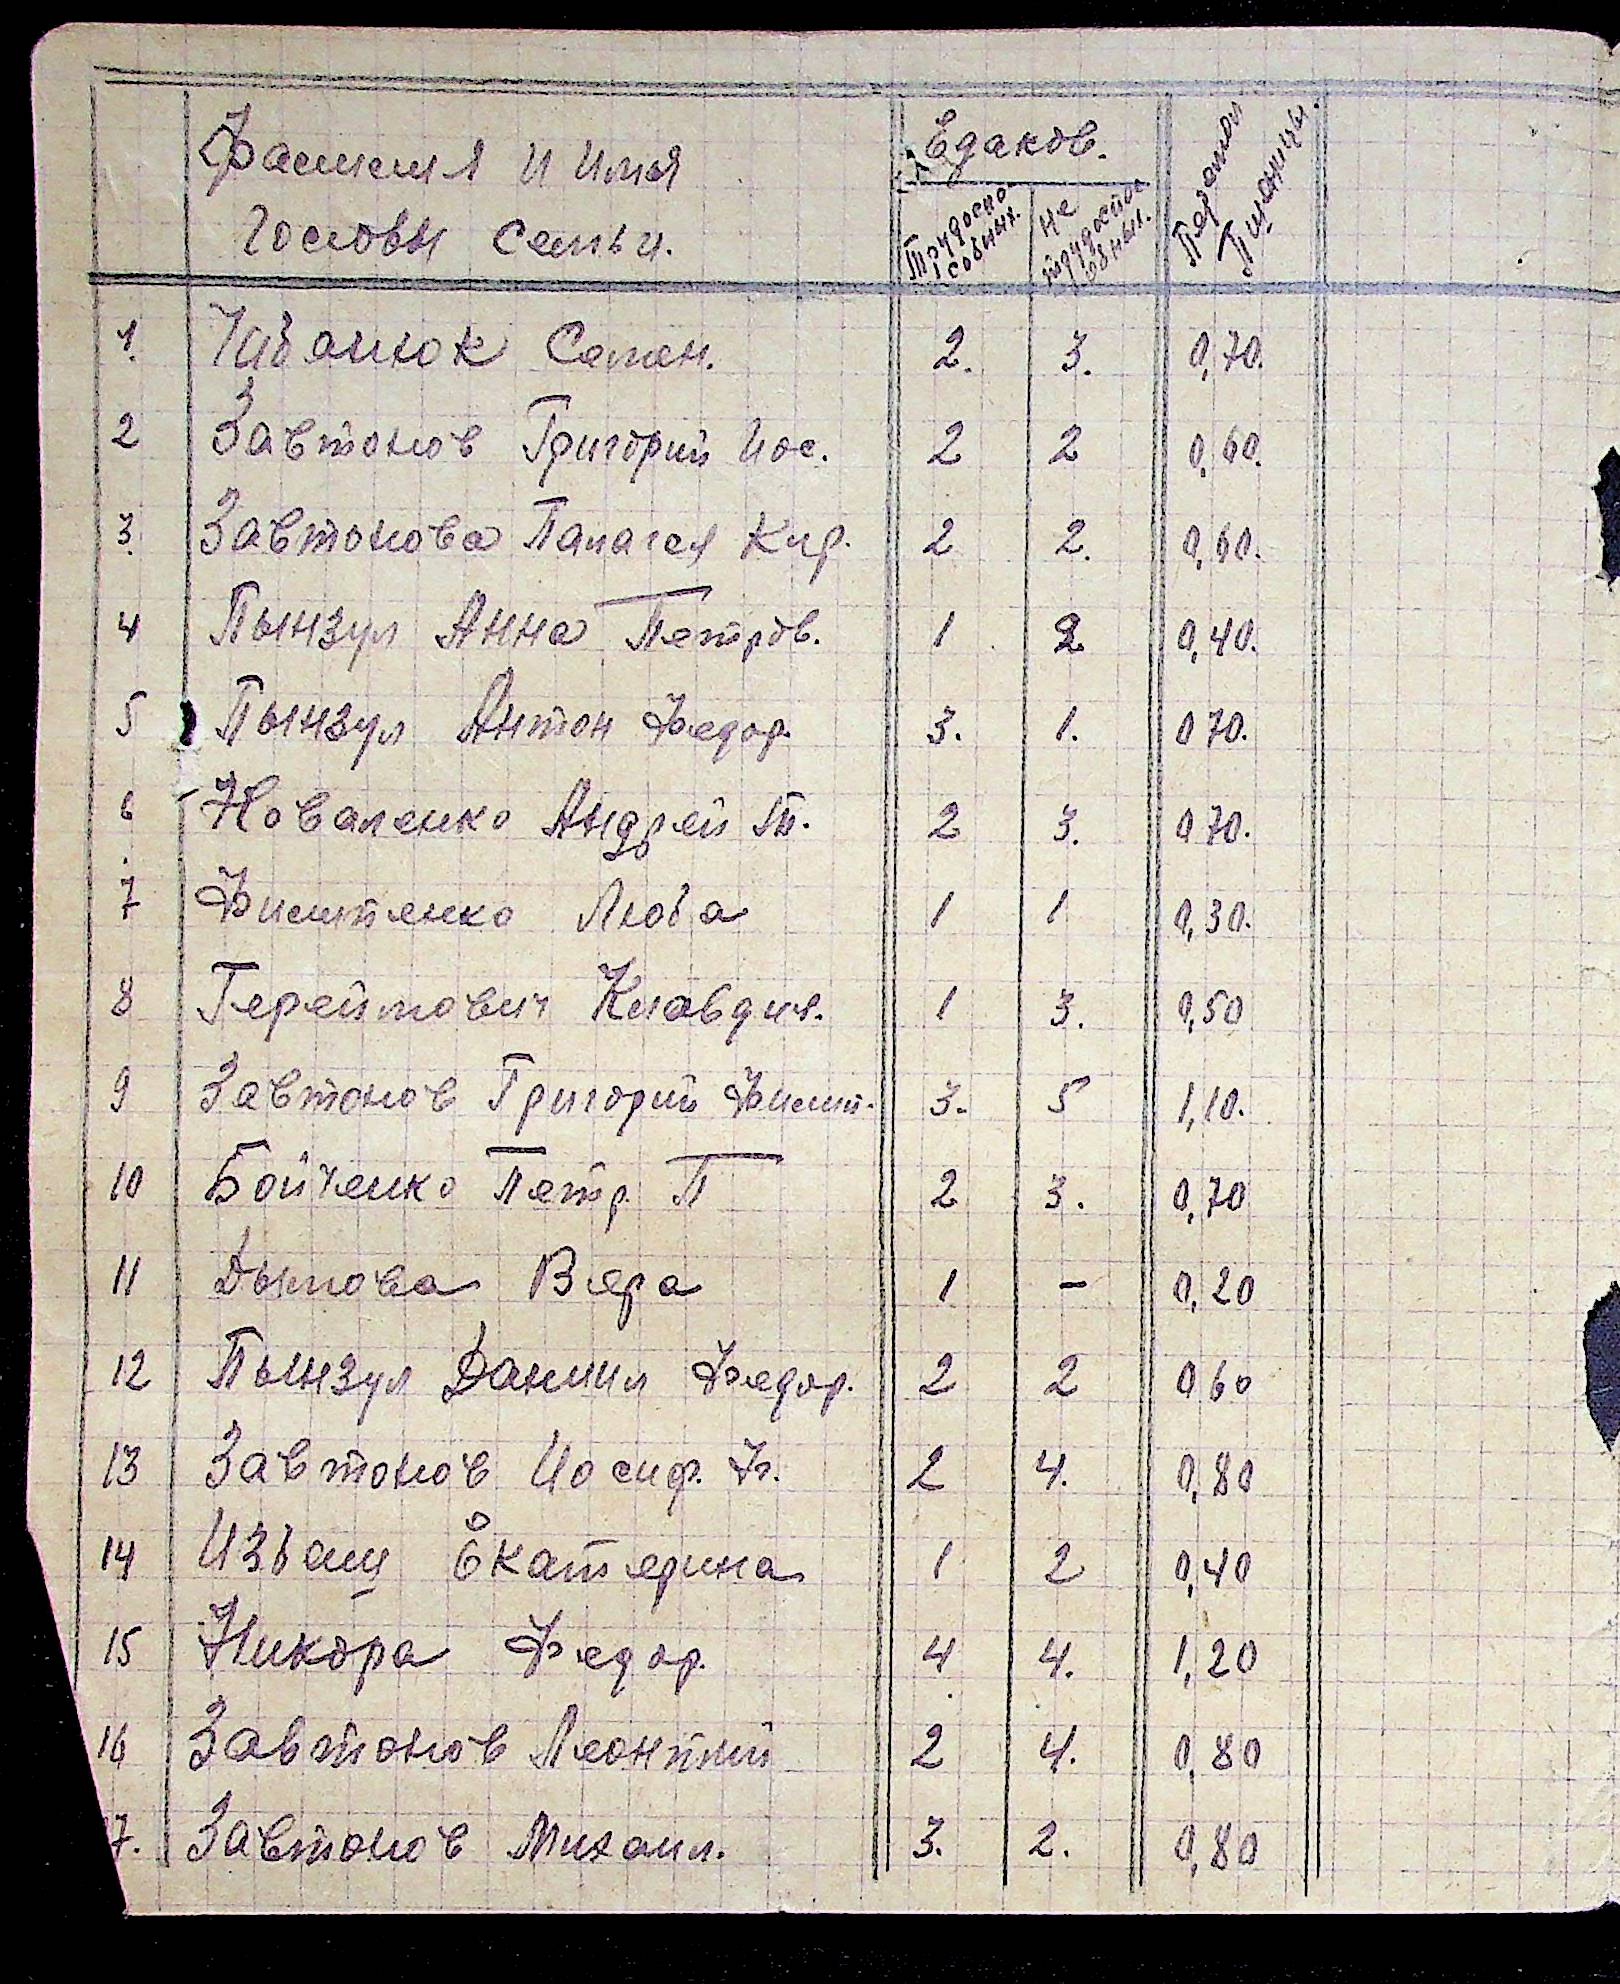 Фамилия и имя
Головы семьи.
Едаков.
Трудоспо
собных.
не
трудоспос
обных.
Пшеницы.
1. Чабанюк Семен. 2. 3. 0,70.
2 Завтонов Григорий Иос. 2 2 0,60.
3. Завтонова Палагея Кир. 2 2. 0,60.
4 Пынзул Анна Петров. 1 2 0,40.
5 Пынзул Антон Федор. 3. 1. 0 70.
6 Коваленко Андрей Т. 2 3. 0 70.
7 Филипенко Люба 1 1 0,30.
8 Гереймович Клавдия. 1 3. 0,50
9 Завтонов Григорий Филип. 3. 5 1,10.
10 Бойченко Петр П 2 3. 0,70
11 Дымова Вера 1 - 0,20
12 Пынзул Даниил Федор. 2 2 0 60
13 Завтонов Иосиф. Ф. 2 4. 0,80
14 Избаш Екатерина 1 2 0,40
15 Никора Федор. 4 4. 1,20
16 Завтонов Леонтий 2 4. 0,80
7. Завтонов Михаил. 3. 2. 0,80